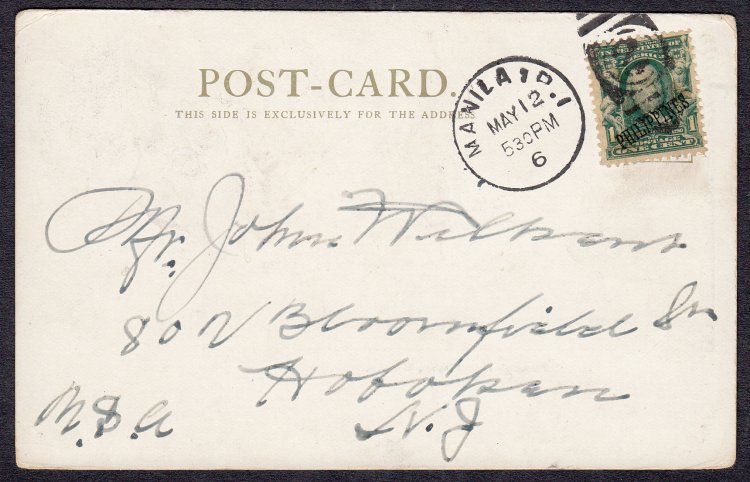 POST-CARD.
THIS SIDE IS EXCLUSIVELY FOR THE ADDRESS
MANILA, P.I.
MAY 12
530PM
6
PHILIPPINES
1 ONE CENT 1
Mr. John Wilkens
802 Bloomfield
Hoboken
N.J
U.S.A